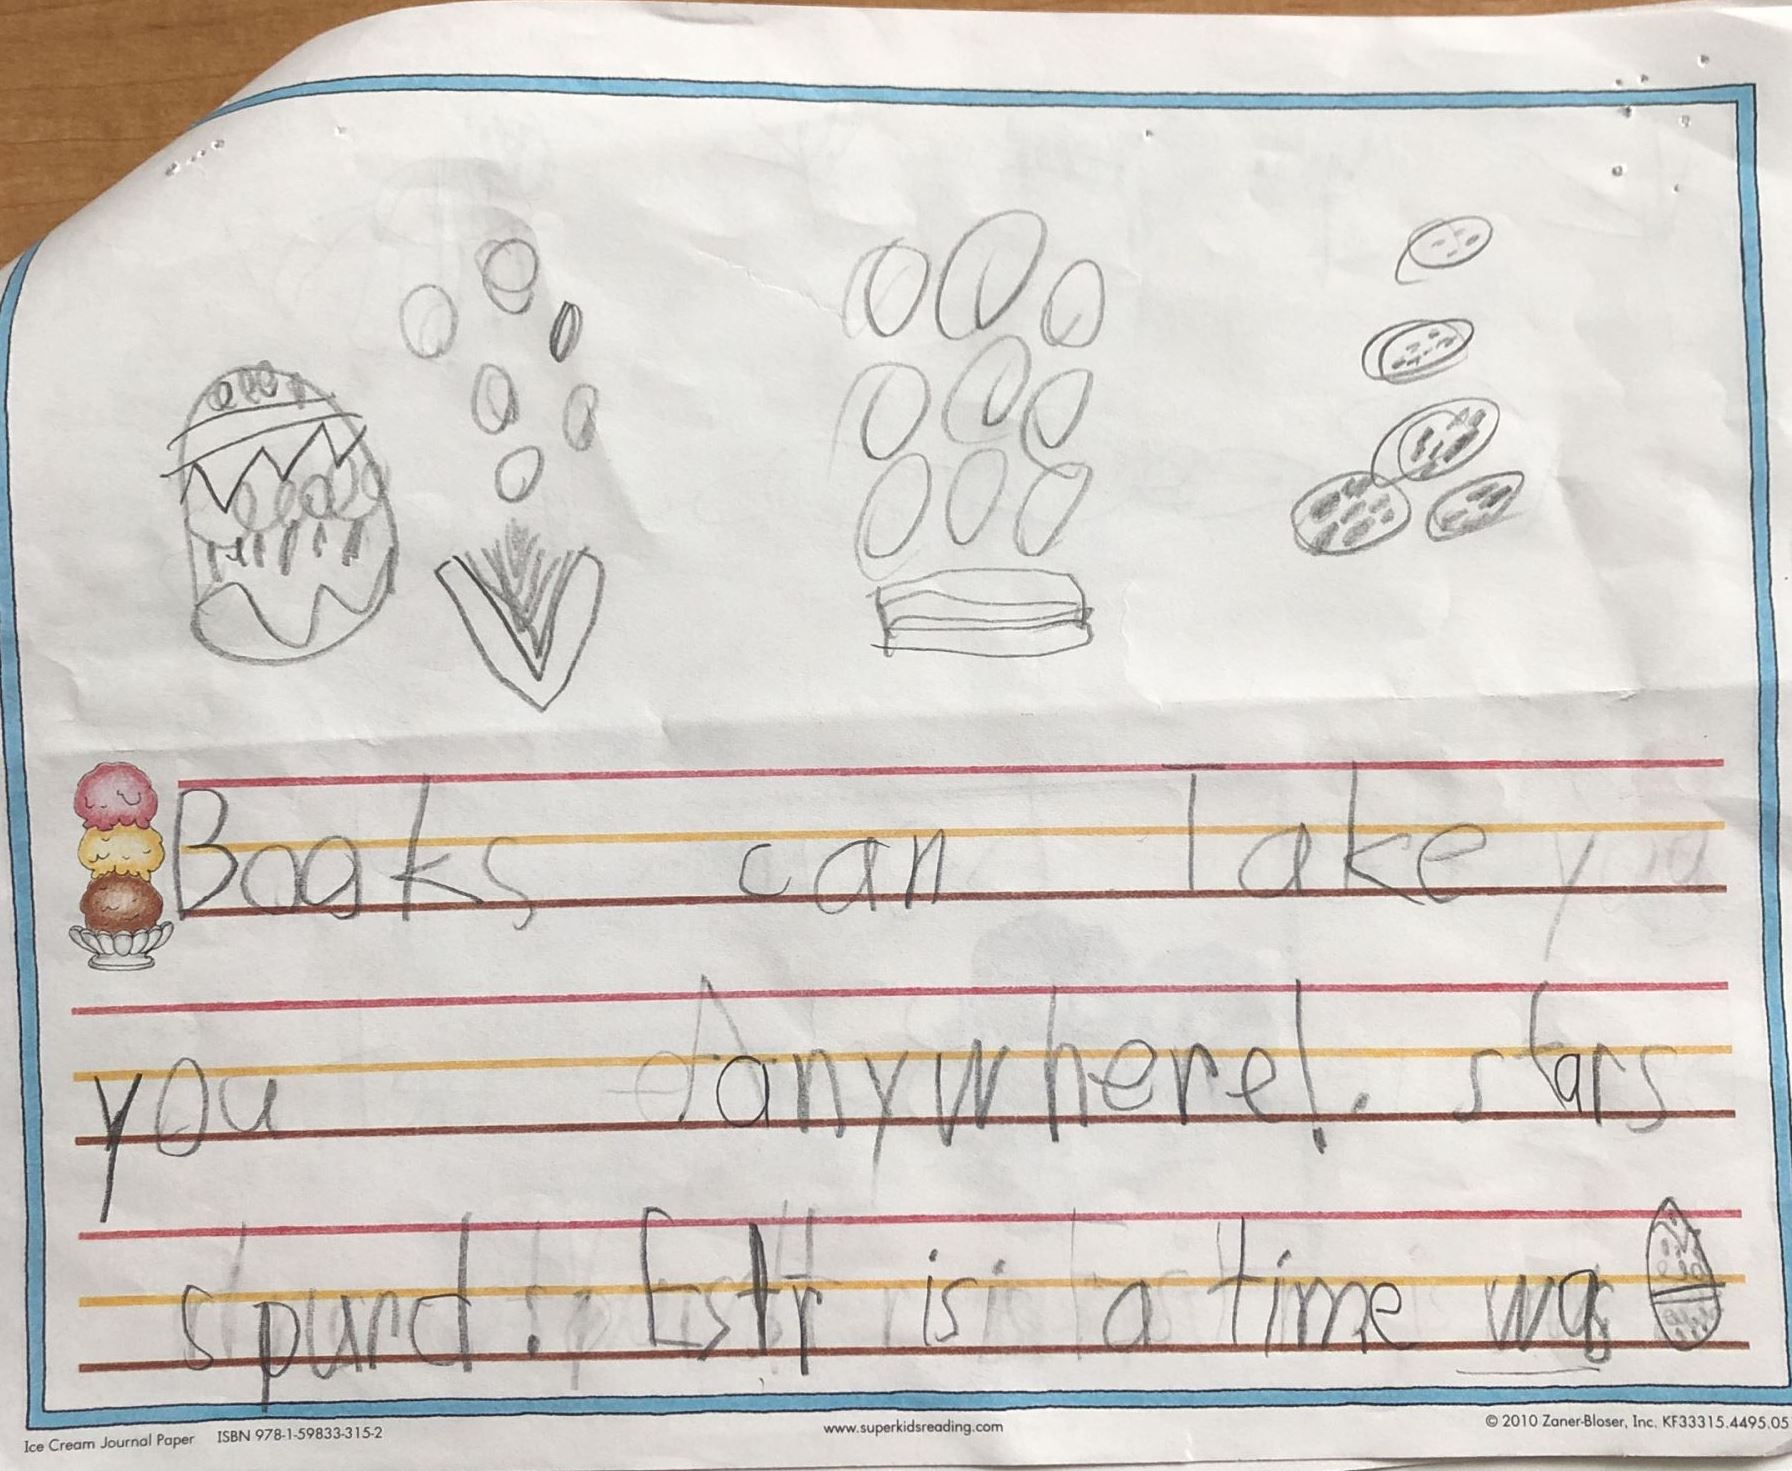 Books can Take
you anywhere!. stars
spund. Estr is a time was
Ice Cream Journal Paper ISBN 978-1-59833-315-2 www.superkidsreading.com © 2010 Zaner-Bloser, Inc. KF33315.4495.05